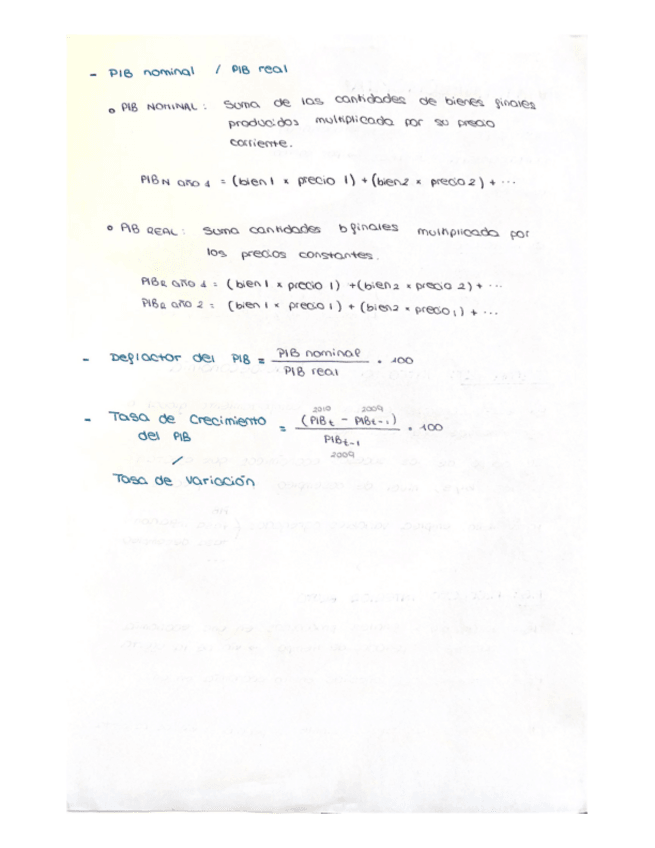 - PIB nominal / PIB real
o PIB NOMINAL : Suma de las cantidades de bienes finales
producidos multiplicada por su precio
corriente.
PIBN año 1 = (bien 1 x precio 1) + (bien 2 x precio 2) + ...
o PIB REAL : Suma cantidades b finales multiplicada por
los precios constantes.
PIBR año 1 = (bien 1 x precio 1) + (bien 2 x precio 2) + ...
PIBR año 2 = (bien 1 x precio 1) + (bien 2 x precio 1) + ...
- Deflactor del PIB = PIB nominal / PIB real · 100
2010 2009
- Tasa de crecimiento = (PIBt - PIBt-1) / PIBt-1 · 100
del PIB
2009
/
Tasa de variación